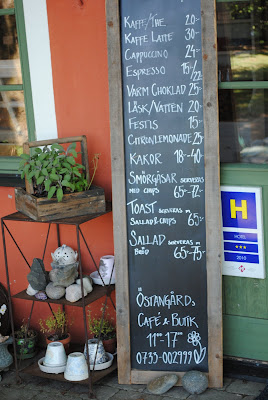 KAFFE/THE 20-
KAFFE LATTE 30-
CAPPUCCINO 24-
ESPRESSO 15/22-
VARM CHOKLAD 25-
LÄSK/VATTEN 20-
FESTIS 15-
CITRONLEMONADE 25-
KAKOR 18-40
SMÖRGÅSAR SERVERAS
MED CHIPS 65-72-
TOAST SERVERAS MED
SALLAD & CHIPS 65-
SALLAD SERVERAS
BRÖD 65-75-
ÖSTANGÅRDS
CAFÉ & BUTIK
11-17
0733-002999
H
HOTEL
2010